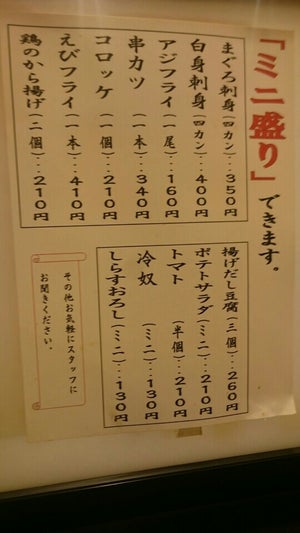 「ミニ盛り」できます。
まぐろ刺身(四カン)…350円
白身刺身(四カン)…400円
アジフライ(一尾)…160円
串カツ(一本)…340円
コロッケ(一個)…210円
えびフライ(一本)…410円
鶏のから揚げ(二個)…210円
揚げだし豆腐(三個)…260円
ポテトサラダ(ミニ)…210円
トマト(半個)…210円
冷奴(ミニ)…130円
しらすおろし(ミニ)…130円
その他お気軽にスタッフに
お聞きください。